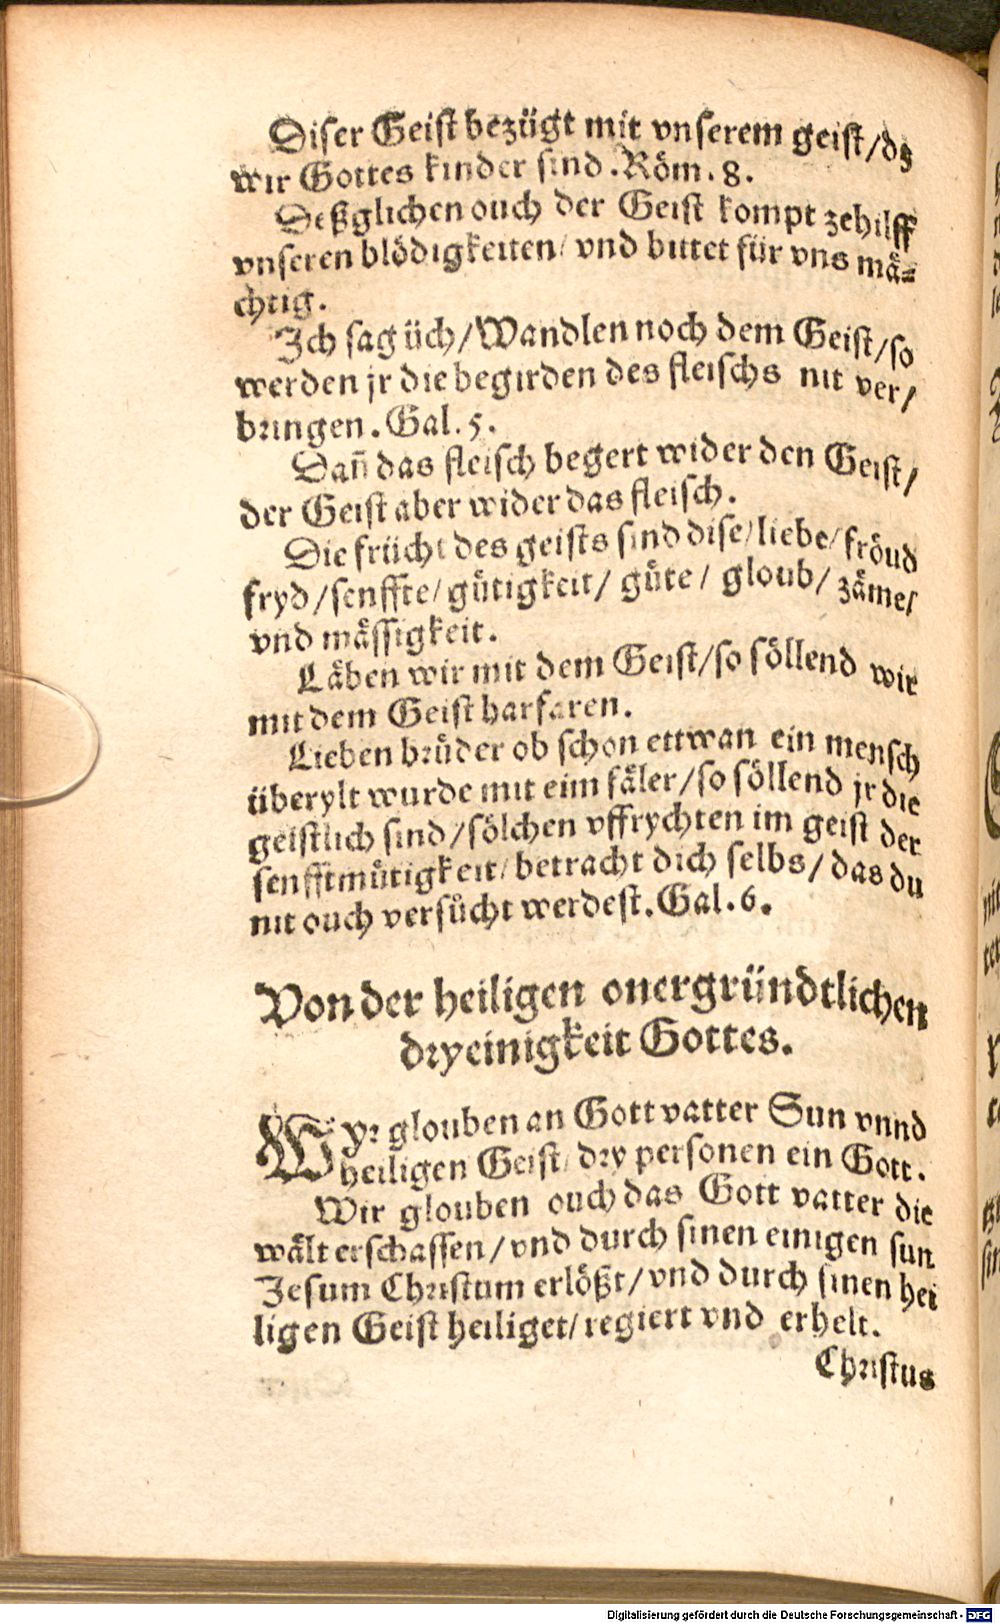 Diser Geist bezügt mit vnserem geist/dz
wir Gottes kinder sind. Röm. 8.
Deßglichen ouch der Geist kompt zehilff
vnseren blödigkeiten/ vnd bittet für vns mä-
chtig.
Ich sag üch/Wandlen noch dem Geist/so
werden jr die begirden des fleischs nit ver/
bringen. Gal. 5.
Dañ das fleisch begert wider den Geist/
der Geist aber wider das fleisch.
Die frücht des geists sind dise/liebe/fröud
fryd/senffte/gütigkeit/ güte/ gloub/ zäme/
vnd mässigkeit.
Läben wir mit dem Geist/so söllend wir
mit dem Geist harfaren.
Lieben brüder ob schon ettwan ein mensch
überylt wurde mit eim fäler/so söllend jr die
geistlich sind/sölchen vffrychten im geist der
senfftmütigkeit/betracht dich selbs/das du
nit ouch versůcht werdest. Gal. 6.
Von der heiligen onergründtlichen
dryeinigkeit Gottes.
Wyr glouben an Gott vatter Sun vnnd
heiligen Geist/ dry personen ein Gott.
Wir glouben ouch das Gott vatter die
wält erschaffen/vnd durch sinen einigen sun
Jesum Christum erlößt/vnd durch sinen hei
ligen Geist heiliget/regiert vnd erhelt.
Christus
Digitalisierung gefördert durch die Deutsche Forschungsgemeinschaft - DFG